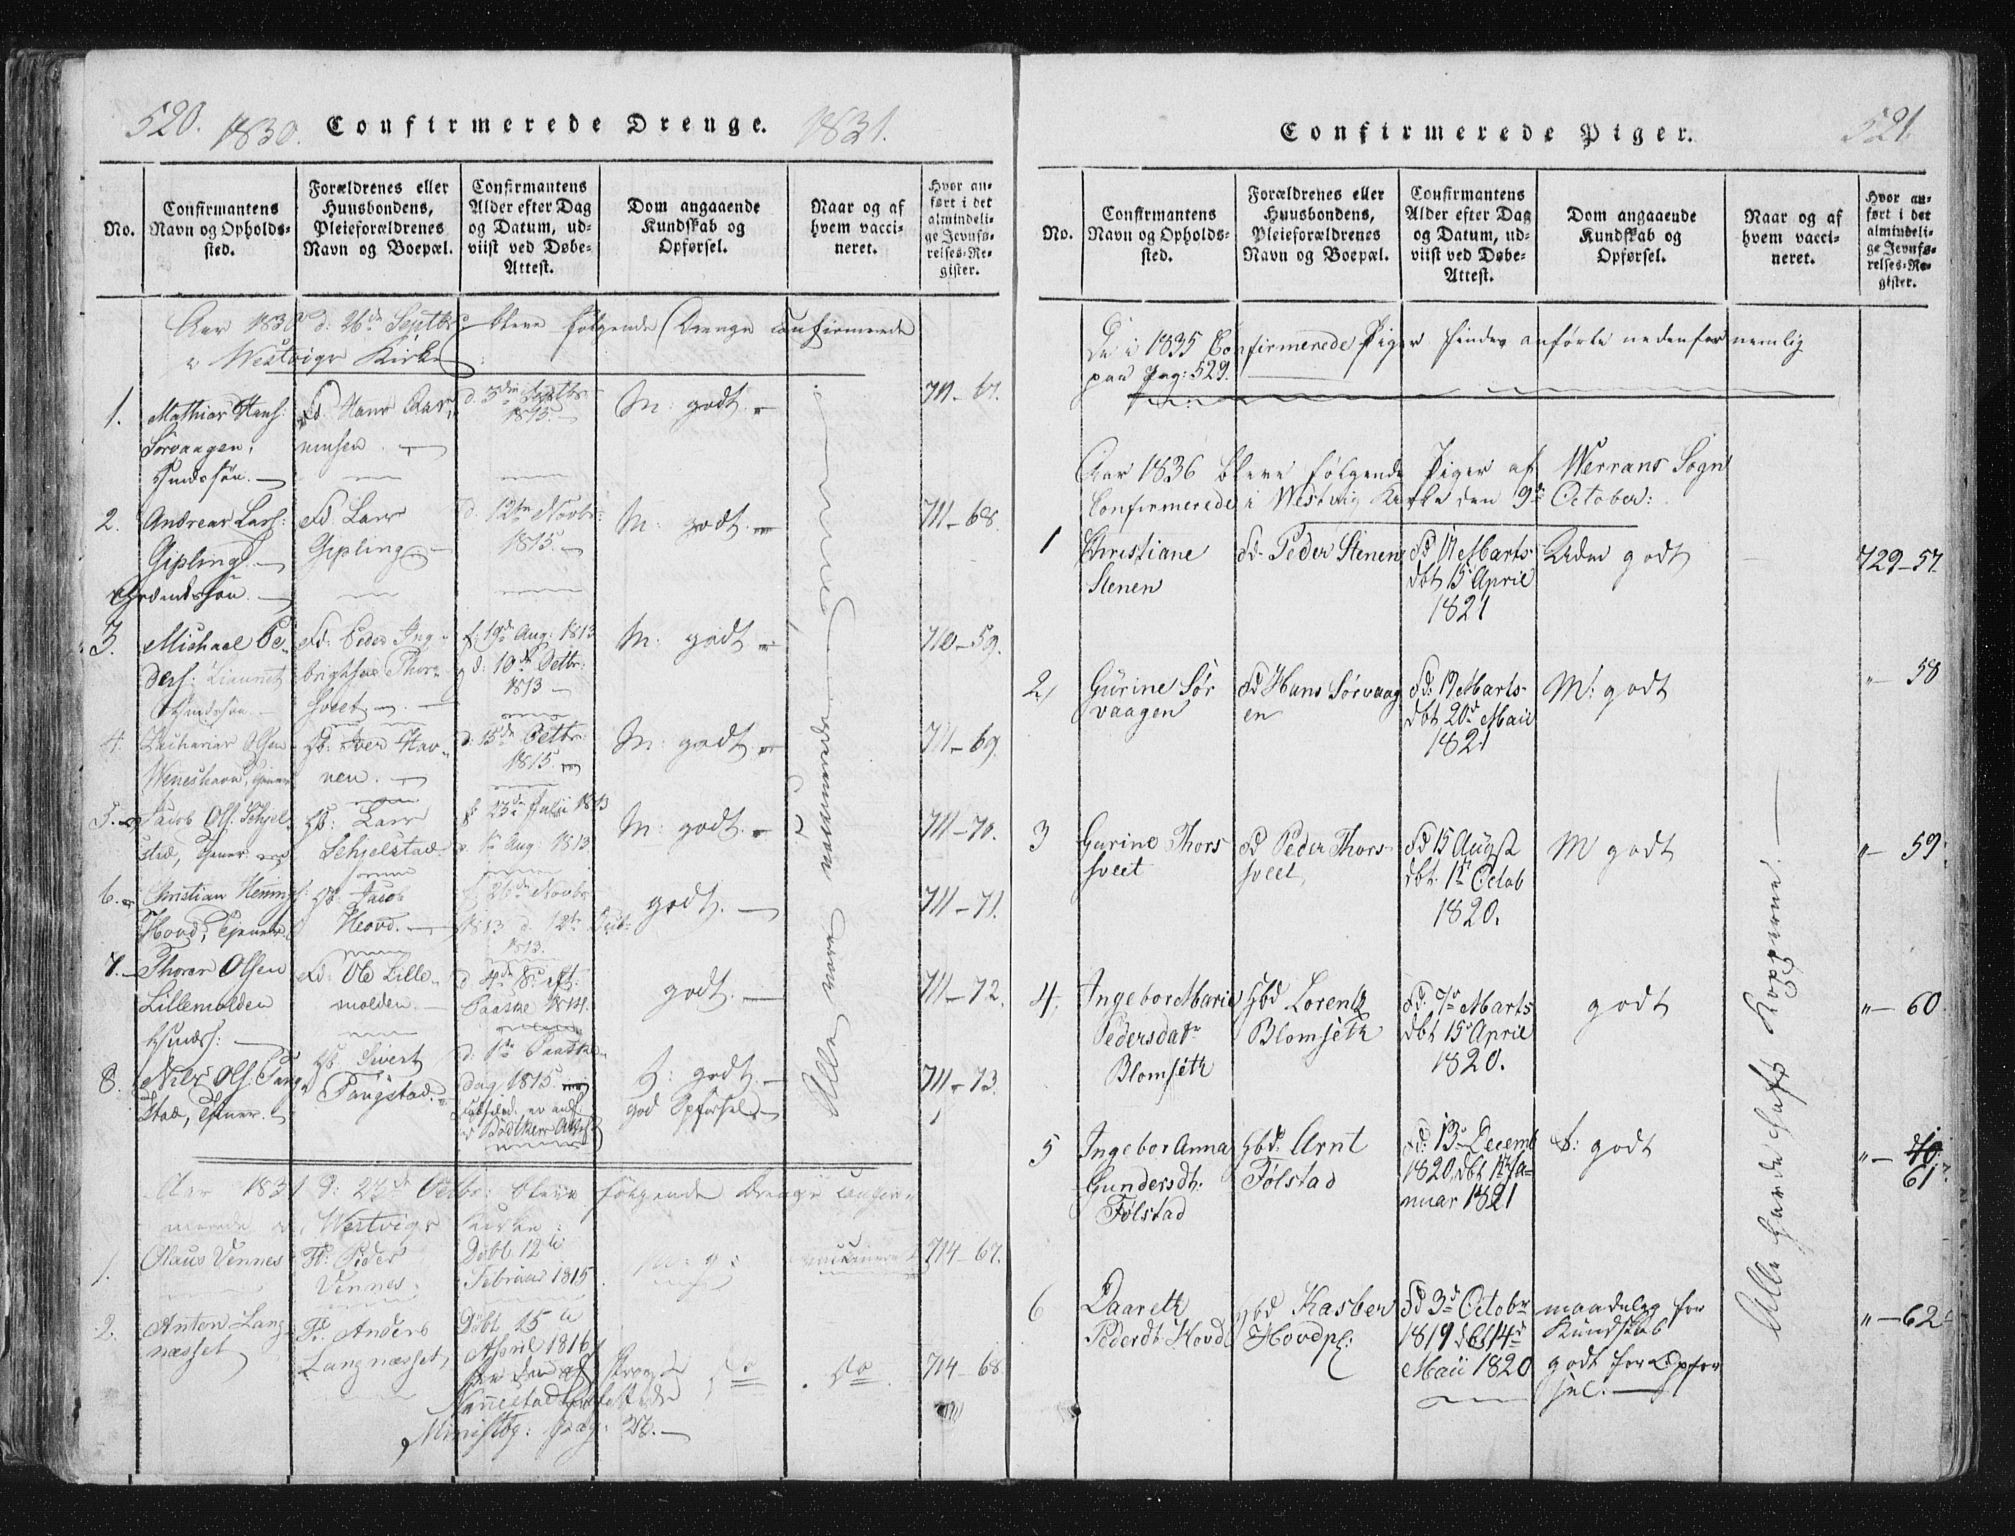 520. 1830. Confirmerede Drenge. 1831.
No.
Confirmantens
Navn og Opholds-
sted.
Forældrenes eller
Huusbondens,
Pleieforældrenes
Navn og Boepæl.
Confirmantens
Alder efter Dag
og Datum, ud-
viist ved Døbe-
Attest.
Dom angaaende
Kundskab og
Opførsel.
Naar og af
hvem vacci-
neret.
Hvor an-
ført i det
almindeli-
ge Jevnfø-
relses-Re-
gister.
Aar 1830 d: 26de Septbr: bleve følgende Drenge confirmerede
i Westvigs Kirke:
1.
Mathias Hans:
Sørvaagen,
Fd. Hans Ras-
musen.
d. 3die Septbr
1815.
M: godt.
711-67.
2.
Andreas Lars:
Gipling.
Fd Lars
Gipling
d. 12te Novbr:
1815.
M: godt.
711-68.
3.
Michael Pe-
ders:
Fd: Peder Ing-
brigtsen Thor-
sveet
f: 19de Aug: 1813
d: 10de Octbr:
1813
M: godt
710-59.
4.
Zacharias Olsen
Hb: Iver Hav-
nen.
d: 15de Octbr:
1815
M: godt
711-69.
5.
Jacob Ols: Schjel-
stad, Tjener
Hb: Lars
Schjelstad
f 23de Julii 1813
1 Aug: 1813
M: godt.
711-70.
6.
Christian Henings:
Hovd, Tjener
Hb: Jacob
Hovd.
f. 26de Novbr
1813 d. 12te
1813.
godt.
711-71.
7.
Thorer Olsen
Lillemolden
Fd: Ole Lille-
molden.
d 4de S: eft:
Paaske 1814.
godt.
711-72.
8.
Nils Ols: Tang-
stad, Tjener.
Hb: Sivert
Tangstad.
d: 1te Paaske
dag 1815.
godt.
god Opførsel.
711-73
Alle ere vaccinerede
Aar 1831 d: 23de Octbr: bleve følgende Drenge confir-
merede i Westvigs Kirke:
1.
Olaus Vennes
F: Peder
Vennes.
Døbt 12te
Februar 1815.
M: g:
vaccineret
714-67.
2.
Anton Lang-
næsset
F: Anders
Langnæsset,
Døbt 15de
April 1816
Do
Do
714-68
Ministbg: pag: 27.
Confirmerede Piger. 521.
No.
Confirmantens
Navn og Opholds-
sted.
Forældrenes eller
Huusbondens,
Pleieforældrenes
Navn og Boepæl.
Confirmantens
Alder efter Dag
og Datum, ud-
viist ved Døbe-
Attest.
Dom angaaende
Kundskab og
Opførsel.
Naar og af
hvem vacci-
neret.
Hvor an-
ført i det
almindeli-
ge Jevnfø-
relses-Re-
gister.
De i 1835 Confirmerede Piger findes anførte nedenfor nemlig
paa Pag: 529.
Aar 1836 bleve følgende Piger af Werrans Sogn
Confirmerede i Westvig Kirke den 9de October:
1
Christiane
Stenen
Fd. Peder Stenen
Fd 17 Marts
dbt 15 April
1821
Udm godt
729-57.
2,
Gurine Sør
vaagen
Fd Hans Sørvaag
en
Fd: 19 Marts
dbt 20d Maii
1821
M: godt
"- 58
3
Gurine Thors
sveet
Fd Peder Thors-
sveet,
Fd 15 August
dbt. 1te Octob
1820.
M godt
"- 59.
4,
Ingebor Marie
Pedersdatr
Blomseth
Hbd Lorentz
Blomseth
Fd. 7de Marts
dbt 15 April
1820.
godt
"- 60
5
Ingebor Anna
Gundersdt:
Følstad
Hbd. Arnt
Følstad
Fd: 13 Decemb
1820, dbt 1te Ja-
nuar 1821
t: godt
"- 40
61.
6
Daareth
Pederdt Hovd
Hbd Kasber
Hovdpl:
Fd 3d Octobr
1819 dbt 14d
Maii 1820
maadelig for
Kundskab
godt for Opfør
sel.
"-62
Alle havde havt Kopperne.